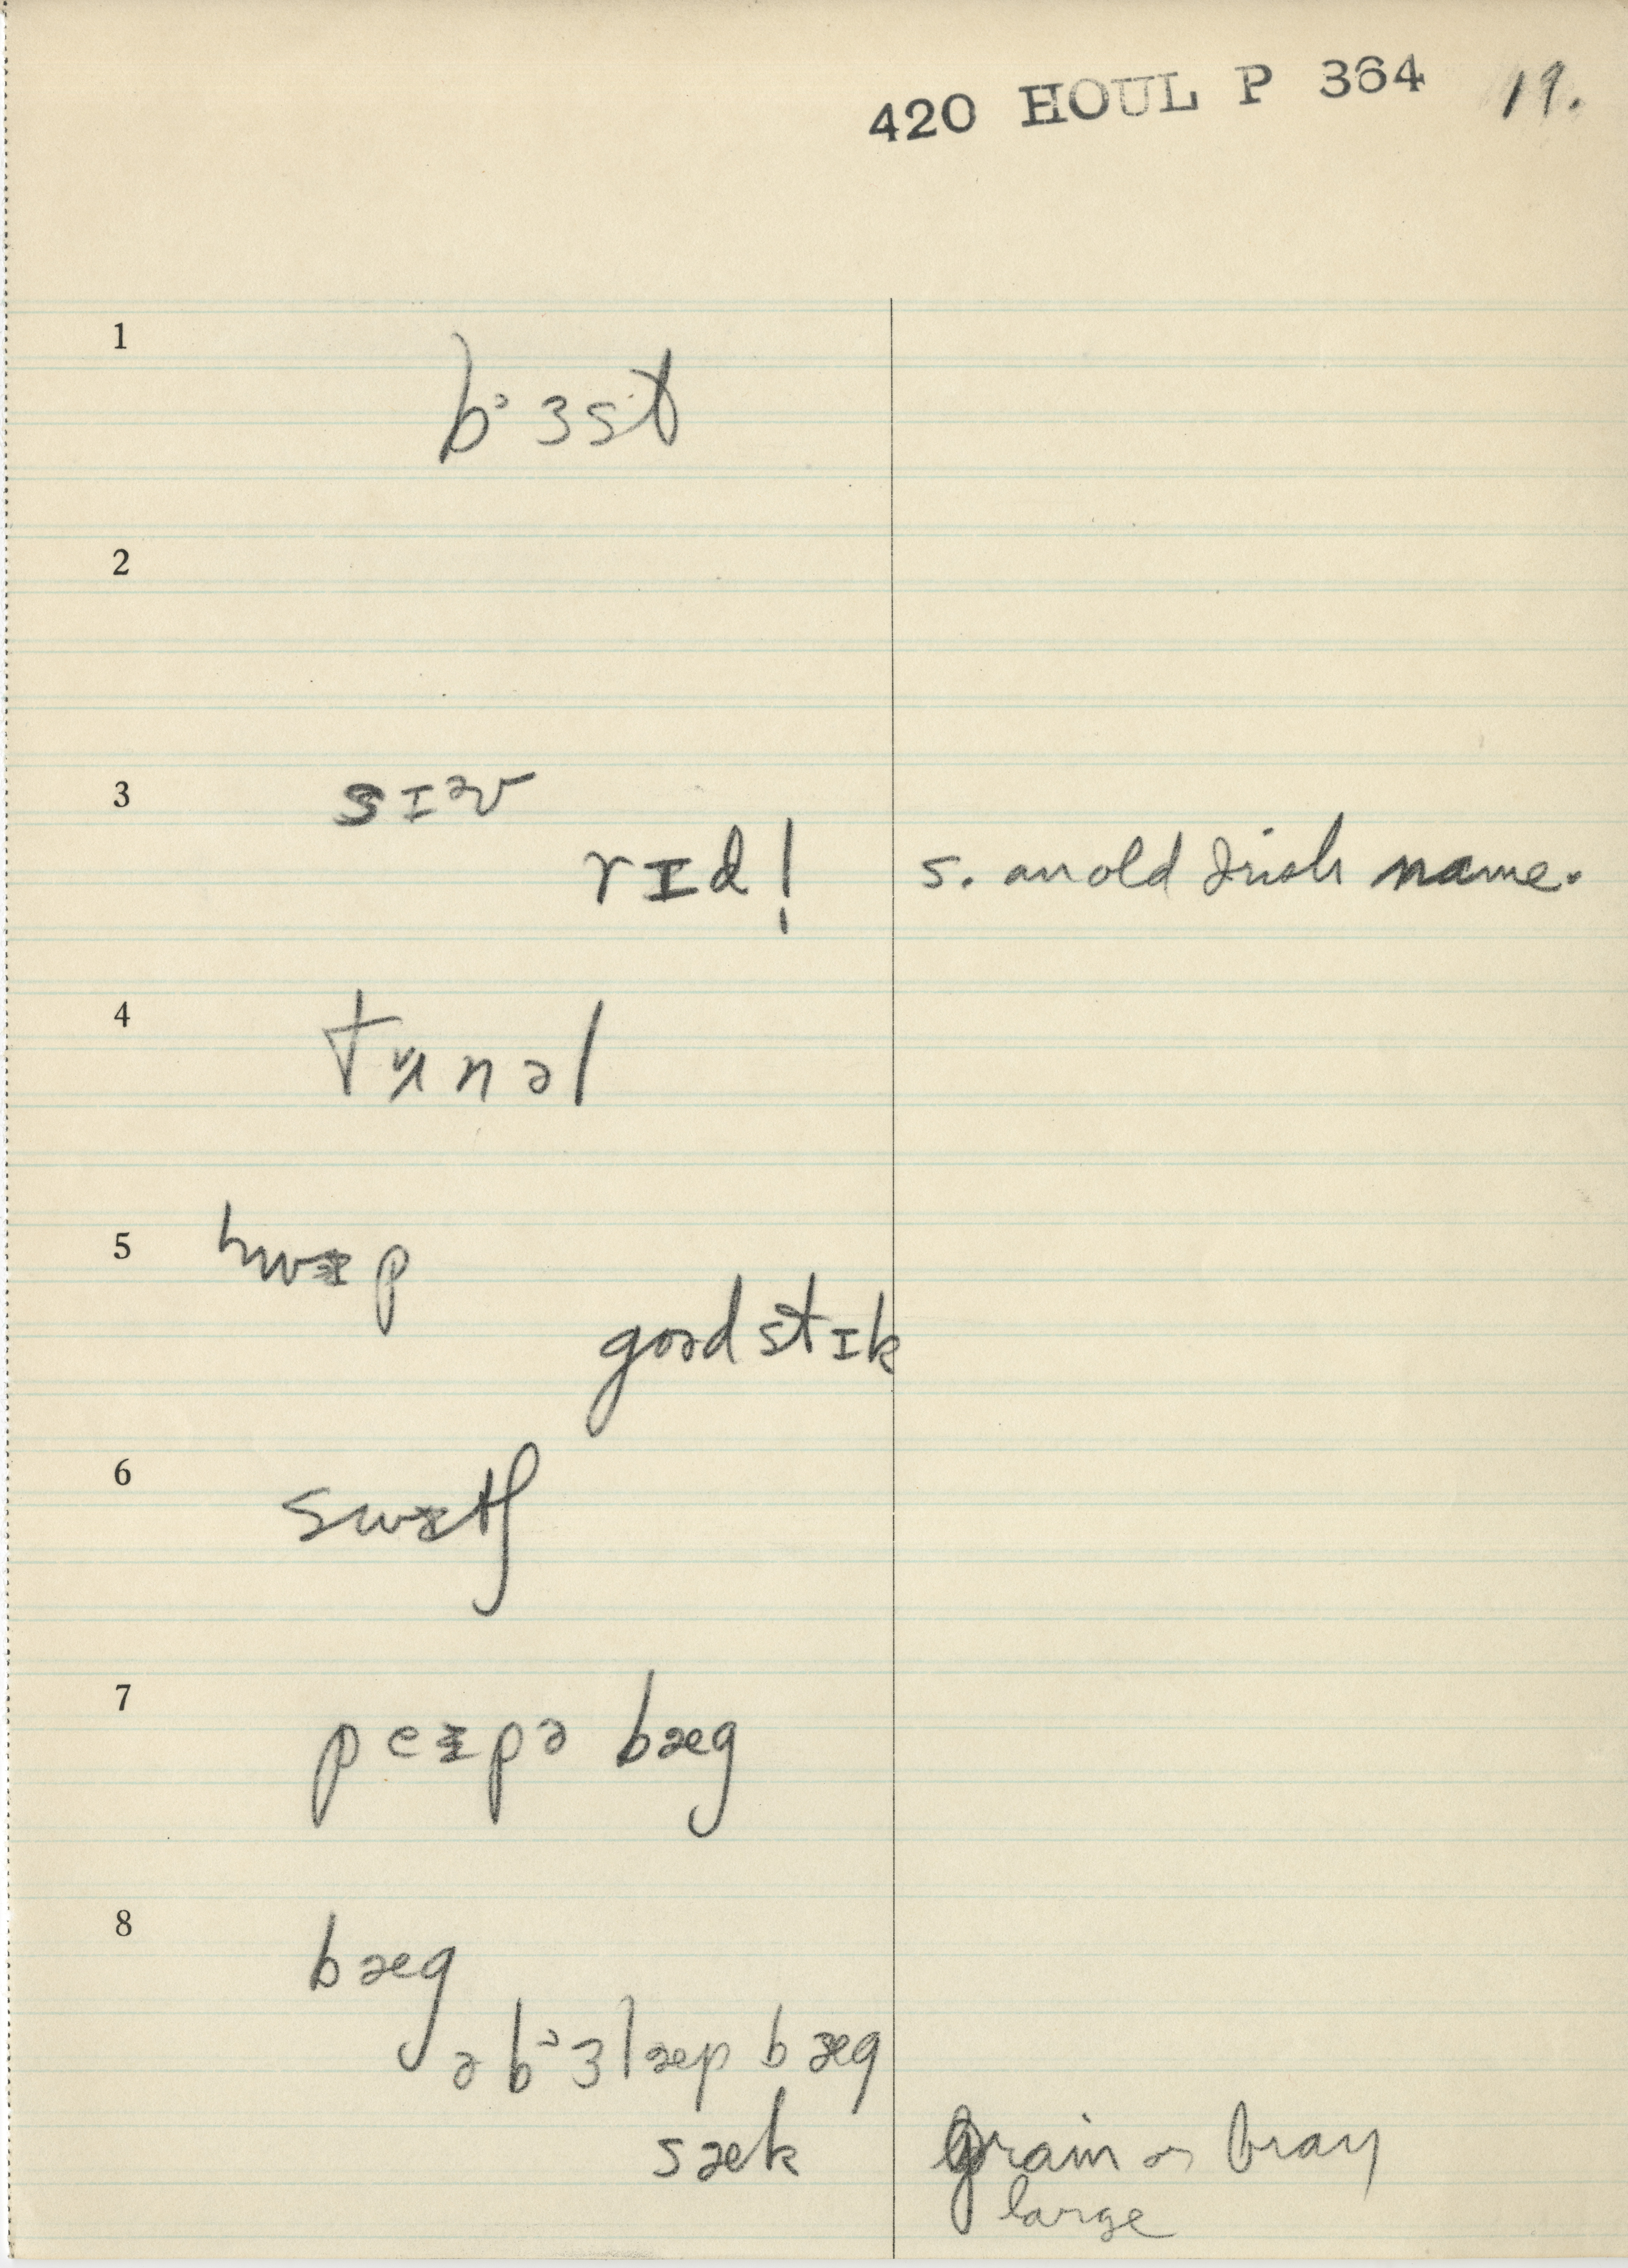 420 HOUL P 364 19.
1
bᵊɜst
2
3 sɪᵊv
rɪd! s. an old Irish name.
4 tʌnəl
5 hwɪp
goəd stɪk
6 swɪtʃ
7 peɪpə bæg
8 bæg
ə bᵊɜlæp bæg
sæk grain or bran
large